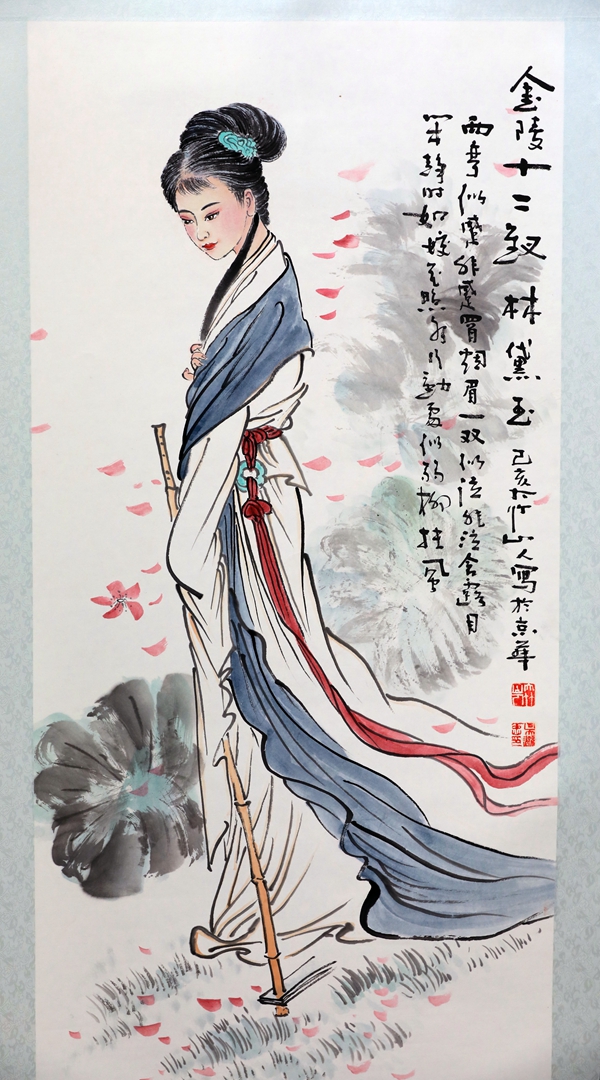 金陵十二釵 林黛玉 己亥大竹山人寫於京華
兩彎似蹙非蹙罥烟眉一双似泣非泣含露目
閑静时如姣花照水行动處似弱柳扶風